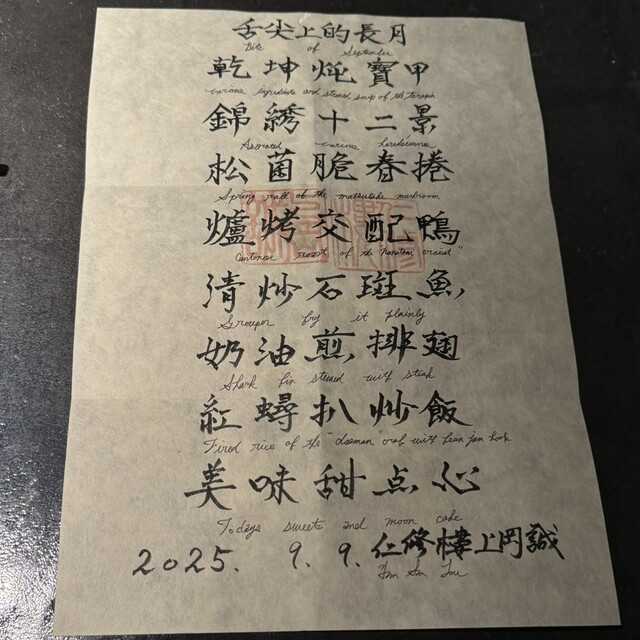 舌尖上的長月
Bite of September
乾坤炖寶甲
various ingredients and steamed soup of the Terapin
錦綉十二景
Assorted various horsdoeuvre
松菌脆春捲
Spring roll of the matsutake mushroom
爐烤交配鴨
Cantonese roast of the
清炒石斑魚
Grouper fry it plainly
奶油煎排翅
Shark fin stewed with steak
紅蟳扒炒飯
Fried rice of the crab with
美味甜点心
Todays sweets and moon cake
2025. 9. 9. 仁修樓上岡誠